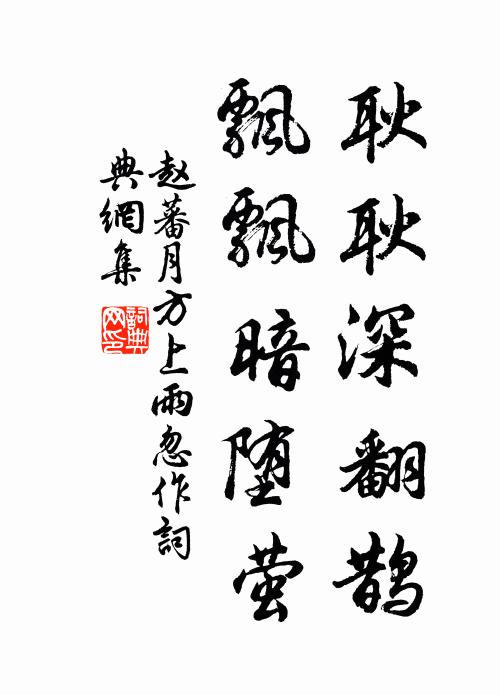 耿耿深翻鹊
飘飘暗堕萤
赵蕃月方上雨忽作詞
典網集
詞典
网印